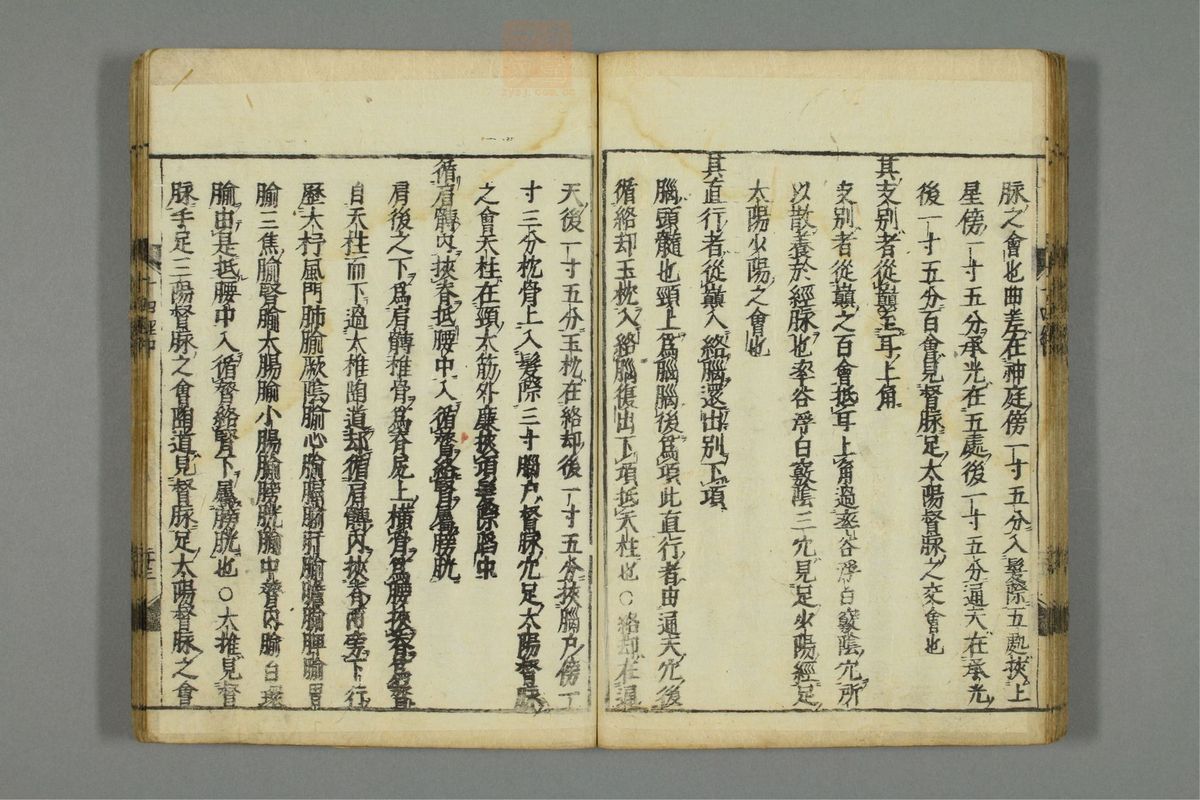 脉之會也曲差在神庭傍一寸五分入髮際五處挾上
星傍一寸五分承光在五處後一寸五分通天在承光
後一寸五分百會見督脉足太陽督脉之交會也
其支別者從巓至耳上角
支別者從巓之百會抵耳上角過率谷浮白竅陰穴所
以散養於經脉也率谷浮白竅陰三穴見足少陽經足
太陽少陽之會也
其直行者從巓入絡腦還出別下項
腦頭髓也頸上爲腦腦後爲項此直行者由通天穴後
循絡却玉枕入絡腦復出下項抵天柱也○絡却在通
天後一寸五分玉枕在絡却後一寸五分挾腦户傍一
寸三分枕骨上入髮際三寸腦户督脉穴足太陽督脉
之會天柱在頸大筋外廉挾項髮際陷中
循肩髆内挾脊抵腰中入循膂絡腎屬膀胱
肩後之下爲肩髆椎骨爲脊尻上横骨爲腰挾脊爲膂
自天柱而下過大椎陶道却循肩髆内挾脊兩旁下行
歷大杼風門肺腧厥陰腧心腧膈腧肝腧膽腧脾腧胃
腧三焦腧腎腧大腸腧小腸腧膀胱腧中膂内腧白環
腧由是抵腰中入循膂絡腎下屬膀胱也○大椎見督
脉手足三陽督脉之會陶道見督脉足太陽督脉之會
十四經中